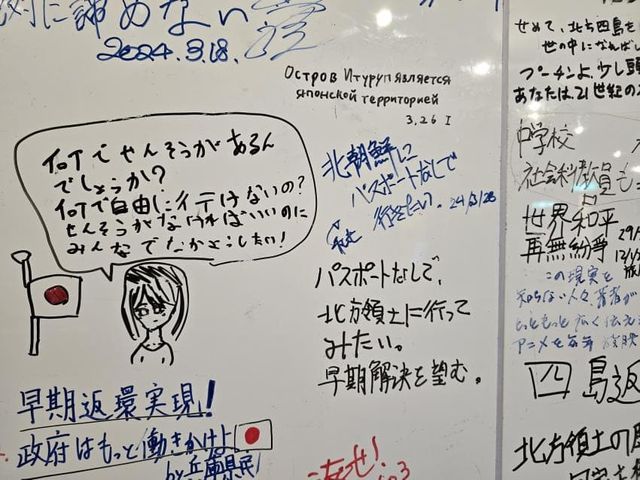 に諦めない
2024.3.18.
Остров Итуруп является
японской территорией
3.26 I
何でせんそうがあるん
でしょうか?
何で自由に行けないの?
せんそうがなければいいのに
みんなでなかよくしたい!
北朝鮮に
パスポートなしで
行きたい。
パスポートなしで、
北方領土に行って
みたい。
早期解決を望む。
早期返還実現!
政府はもっと働きかけよ
by兵庫県民
返せ!
せめて、北方四島を
世の中になれば
プーチンよ、少し頭
あなたは、21世紀の
中学校
社会科教員も
世界和平
再無紛爭
この現実を
知らない人々、若者が
もっともっと広く伝え
アニメを
四島返
北方領土の